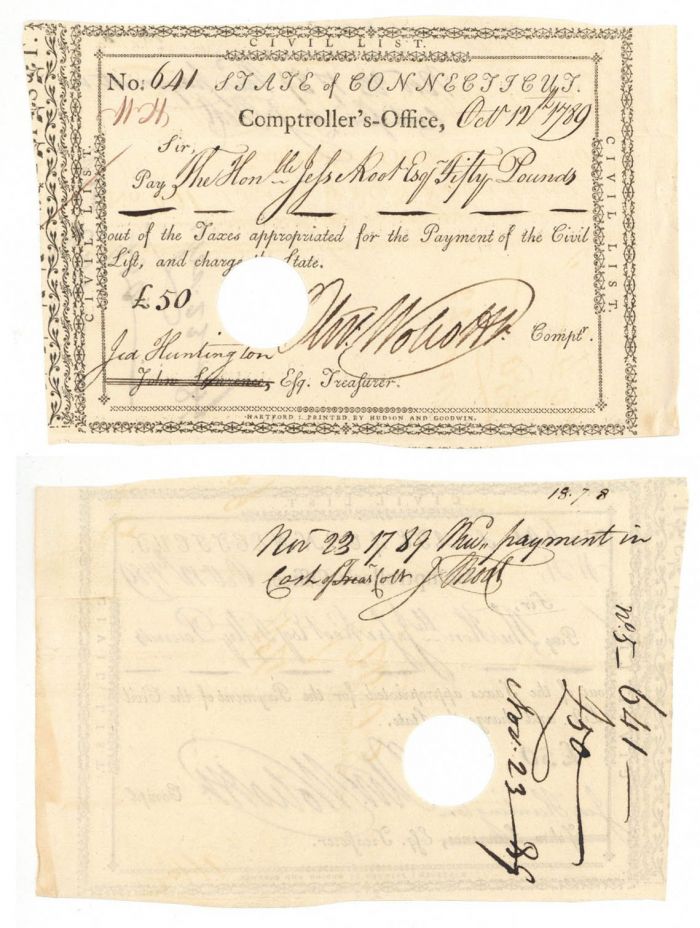 CIVIL LIST.
No: 641 STATE of CONNECTICUT.
Comptroller's-Office, Oct 12th 1789
Sir,
Pay The Honble Jesse Root Esqr Fifty Pounds
out of the Taxes appropriated for the Payment of the Civil
List, and charge the State.
£50
Comptr.
Jed Huntington
John Lawrence, Esq. Treasurer.
HARTFORD: PRINTED BY HUDSON AND GOODWIN.
CIVIL LIST.
CIVIL LIST.
18.7.8
Nov 23 1789 payment in
Cash of Colt J Root
No. 641
£50
Nov. 23 89